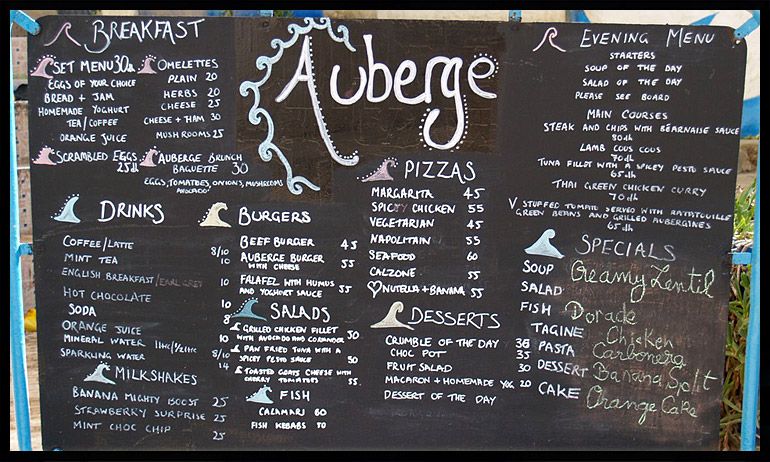 BREAKFAST
SET MENU 30dh
EGGS OF YOUR CHOICE
BREAD + JAM
HOMEMADE YOGHURT
TEA/COFFEE
ORANGE JUICE
SCRAMBLED EGGS 25dh
OMELETTES
PLAIN 20
HERBS 20
CHEESE 25
CHEESE + HAM 30
MUSHROOMS 25
AUBERGE BRUNCH
BAGUETTE 30
EGGS, TOMATOES, ONIONS, MUSHROOMS
AVOCADO
Auberge
DRINKS
COFFEE/LATTE 8/10
MINT TEA 10
ENGLISH BREAKFAST/EARL GREY 10
HOT CHOCOLATE 10
SODA 8
ORANGE JUICE 10
MINERAL WATER 1Ltr/½Ltr 8/10
SPARKLING WATER 14
MILKSHAKES
BANANA MIGHTY BOOST 25
STRAWBERRY SURPRISE 25
MINT CHOC CHIP 25
BURGERS
BEEF BURGER 45
AUBERGE BURGER 55
WITH CHEESE
FALAFEL WITH HUMUS
AND YOGHURT SAUCE 55
SALADS
GRILLED CHICKEN FILLET
WITH AVOCADO AND CORIANDER 50
PAN FRIED TUNA WITH A
SPICEY PESTO SAUCE 50
TOASTED GOATS CHEESE WITH
CHERRY TOMATOES 55
FISH
CALAMARI 60
FISH KEBABS 70
PIZZAS
MARGARITA 45
SPICY CHICKEN 55
VEGETARIAN 45
NAPOLITAIN 55
SEAFOOD 60
CALZONE 55
NUTELLA + BANANA 55
DESSERTS
CRUMBLE OF THE DAY 35
CHOC POT 35
FRUIT SALAD 30
MACARON + HOMEMADE YOG 20
DESSERT OF THE DAY
EVENING MENU
STARTERS
SOUP OF THE DAY
SALAD OF THE DAY
PLEASE SEE BOARD
MAIN COURSES
STEAK AND CHIPS WITH BÉARNAISE SAUCE
80dh
LAMB COUS COUS
70dh
TUNA FILLET WITH A SPICEY PESTO SAUCE
65dh
THAI GREEN CHICKEN CURRY
70dh
V STUFFED TOMATO SERVED WITH RATATOUILLE
GREEN BEANS AND GRILLED AUBERGINES
65dh
SPECIALS
SOUP Creamy Lentil
SALAD
FISH Dorade
TAGINE Chicken
PASTA Carbonera
DESSERT Banana Split
CAKE Orange Cake